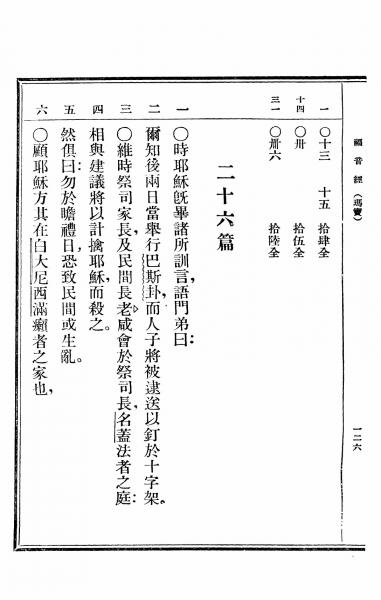 福音經(瑪竇)
一二六
一 〇十三 十五 拾肆全
十四 〇卅 拾伍全
三一 〇卅六 拾陸全
二十六篇
一 〇時耶穌旣畢諸所訓言,語門弟曰:
二 爾知後兩日當舉行巴斯卦,而人子將被逮送以釘於十字架。
三 〇維時祭司家長,及民間長老,咸會於祭司長,名蓋法者之庭:
四 相與建議將以計擒耶穌,而殺之。
五 然俱曰:勿於瞻禮日,恐致民間或生亂。
六 〇顧耶穌方其在白大尼西滿癩者之家也,